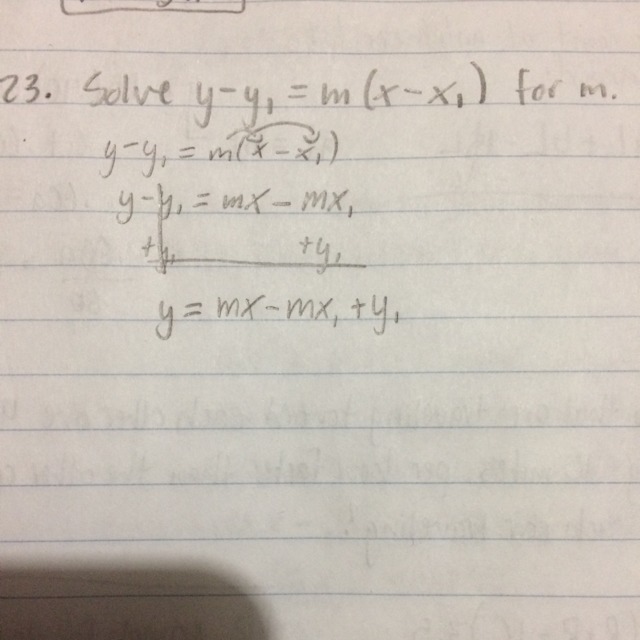 23. Solve y-y₁ = m(x-x₁) for m.
y-y₁ = m(x-x₁)
y-y₁ = mx - mx₁
+y₁ +y₁
y = mx-mx₁+y₁